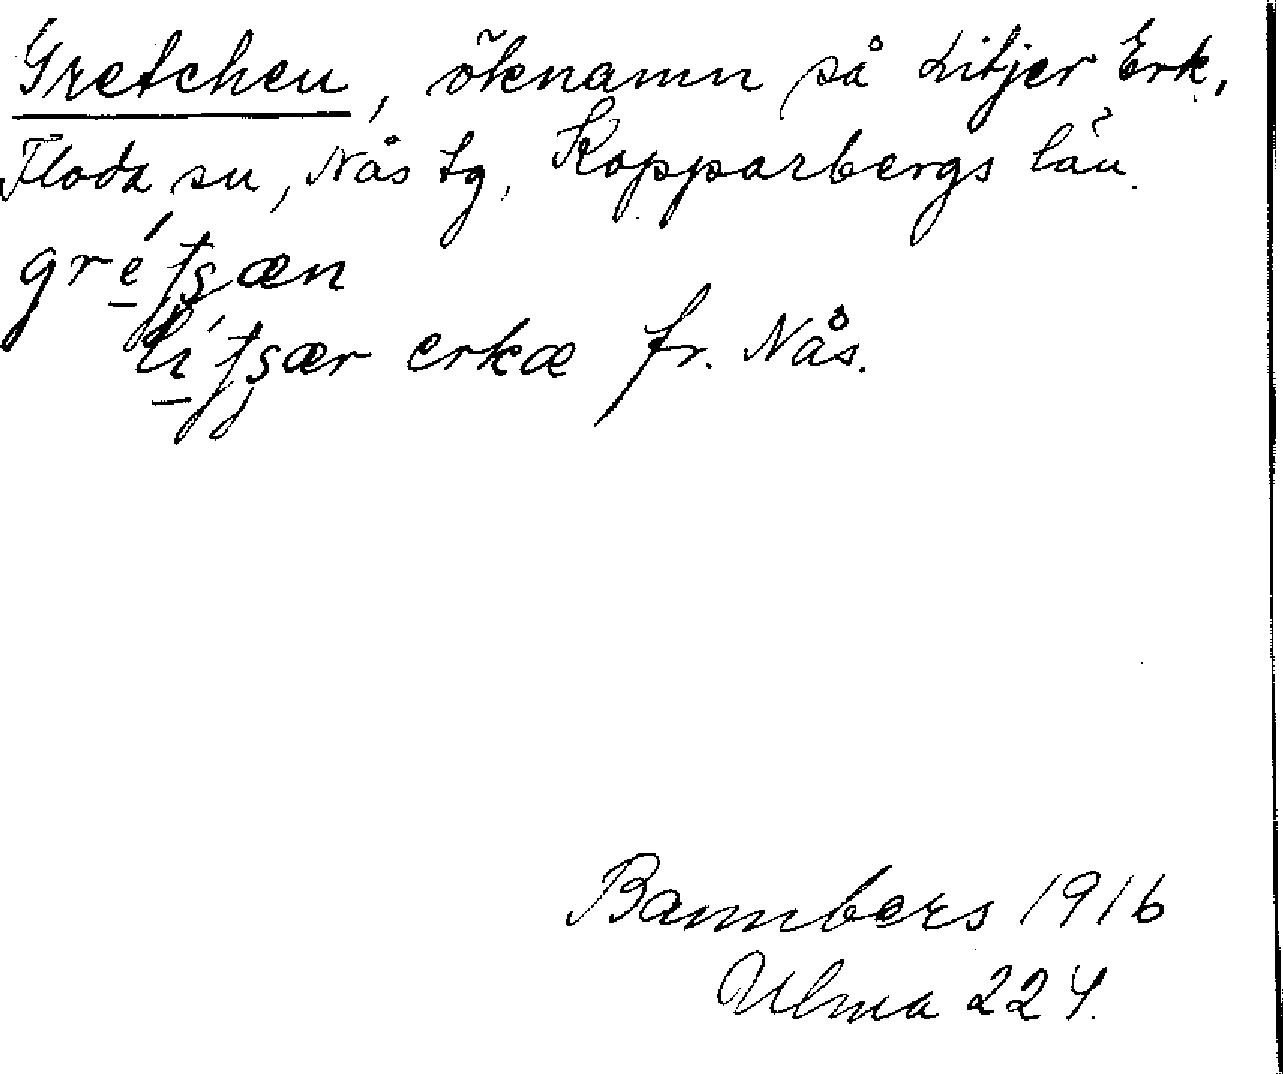 Gretchen, öknamn på Litjer Erk,
Floda sn, Nås tg, Kopparbergs län.
erkæ fr. Nås.
Bannbers 1916
Ulma 224.